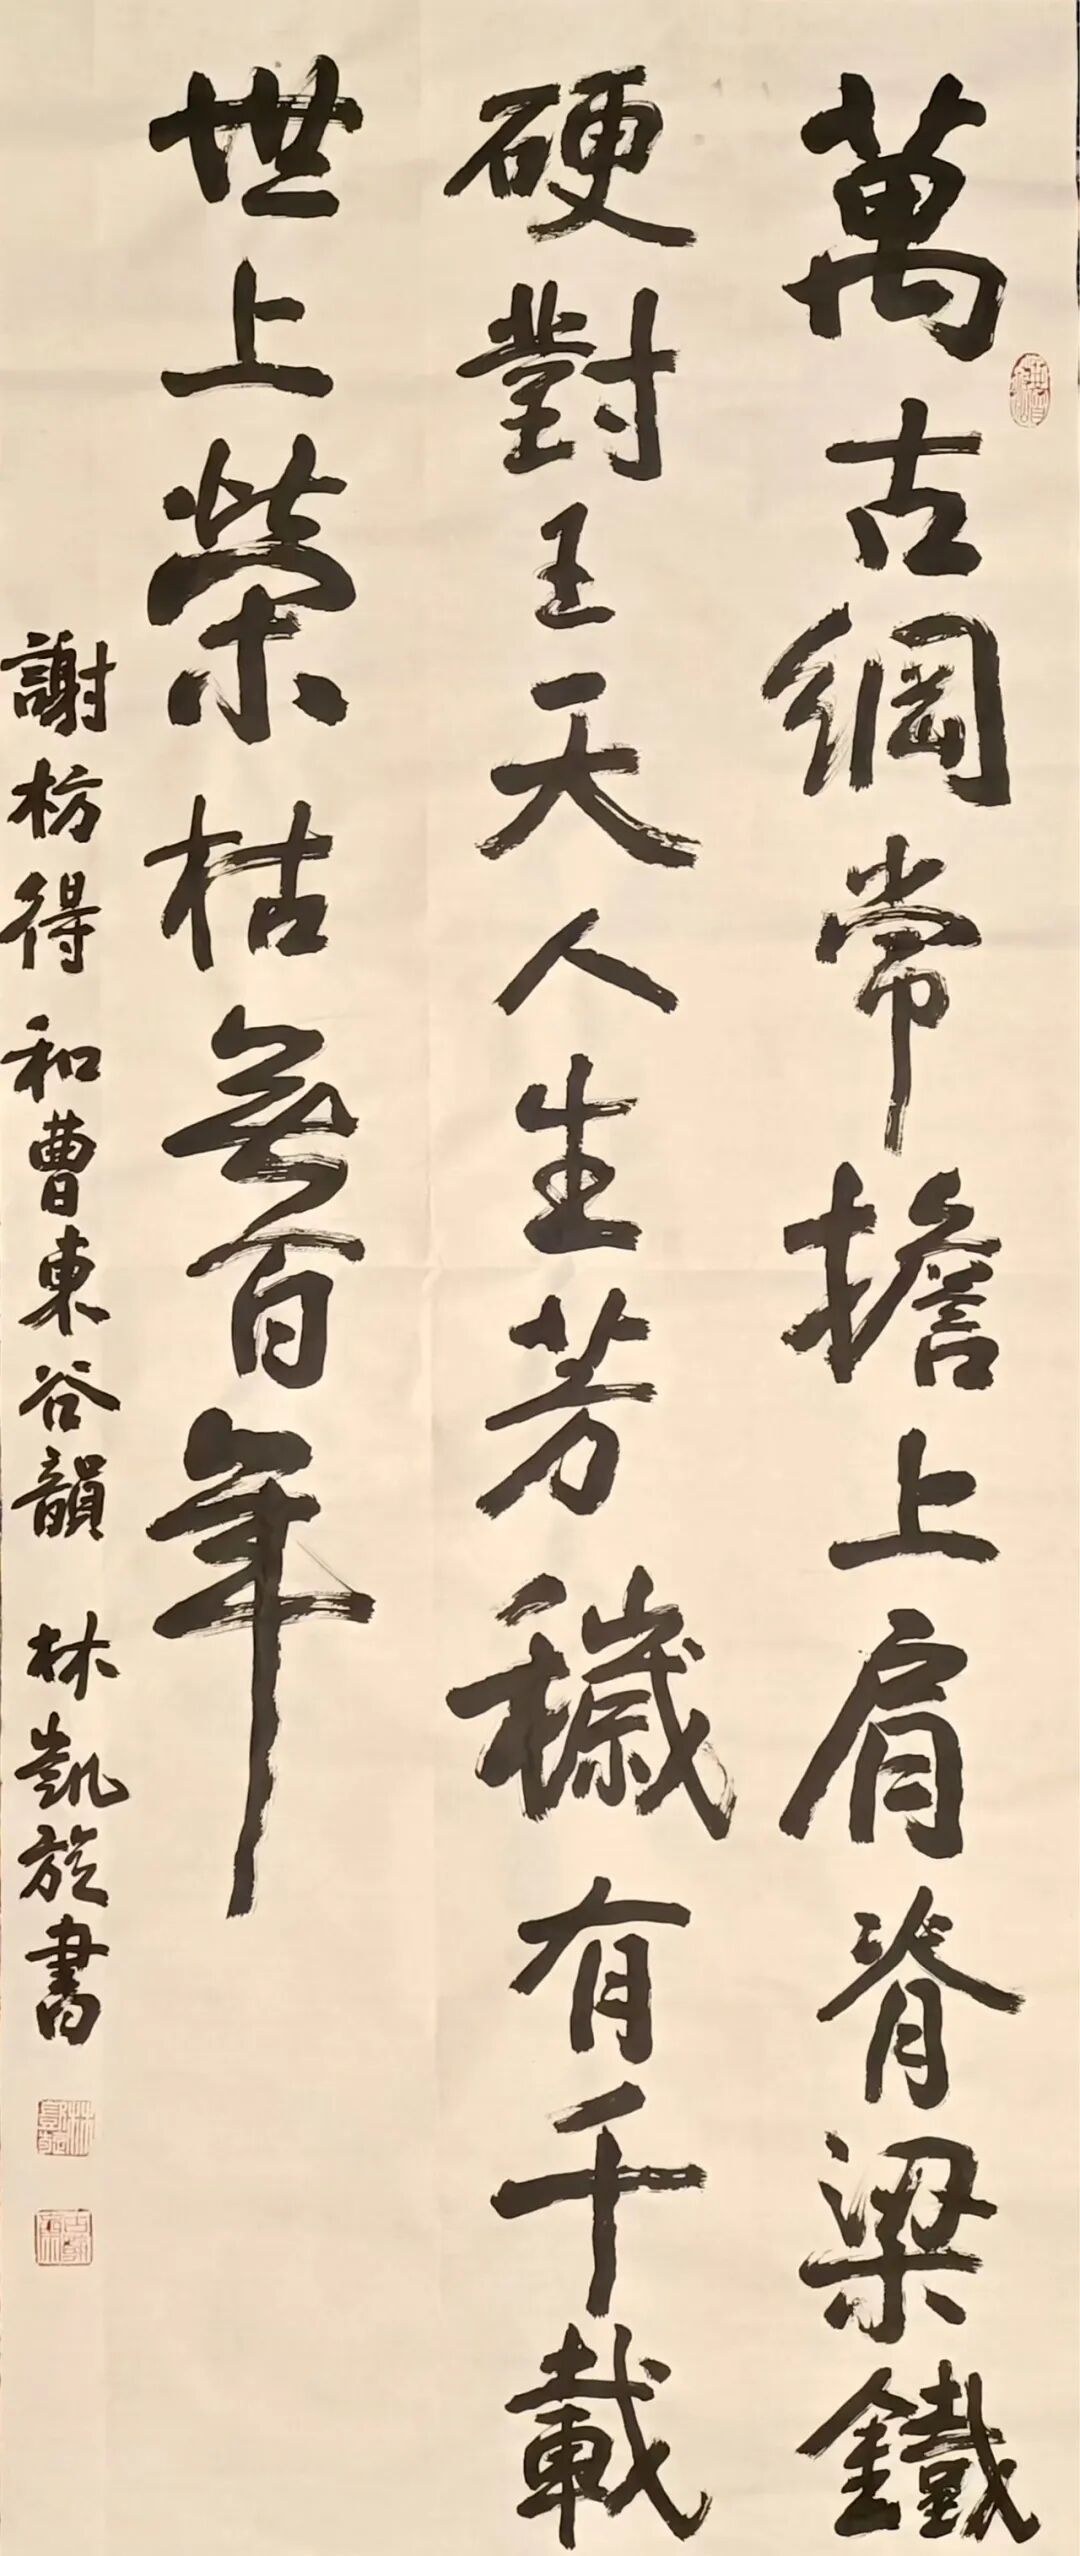 萬古綱常擔上肩脊梁鐵
硬對王天人生芳穢有千載
世上榮枯無百年
謝枋得和曹東谷韻 林凱旋書